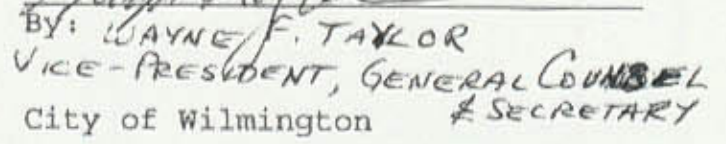 By: WAYNE F. TAYLOR
VICE-PRESIDENT, GENERAL COUNSEL
& SECRETARY
City of Wilmington